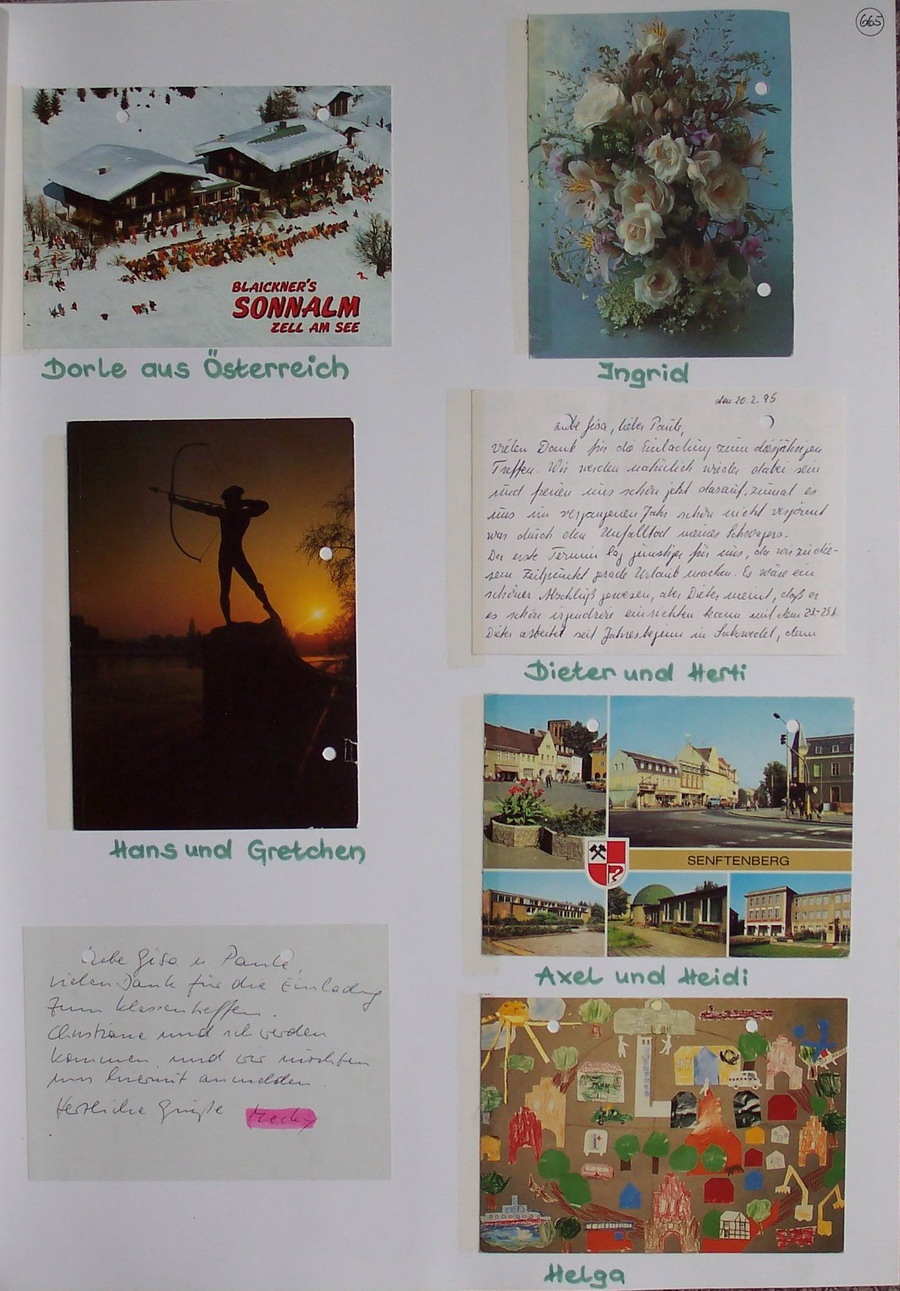 665
BLAICKNER'S
SONNALM
ZELL AM SEE
Dorle aus Österreich
Ingrid
den 20.2.95
Liebe Gisa, lieber Paule,
vielen Dank für die Einladung zum diesjährigen
Treffen. Wir werden natürlich wieder dabei sein
und freuen uns schon jetzt darauf, zumal es
uns im vergangenen Jahr schon nicht vergönnt
war durch den Unfalltod meines Schwagers.
Der erste Termin lag günstiger für uns, da wir zu die-
sem Zeitpunkt gerade Urlaub machen. Es wäre ein
schöner Abschluß gewesen, aber Dieter meint, daß er
es schon irgendwie einrichten kann mit dem 23.-25.6.
Dieter arbeitet seit Jahresbeginn in Salzwedel, denn
Dieter und Herti
Hans und Gretchen
SENFTENBERG
Axel und Heidi
Liebe Gisa u Paule,
vielen Dank für die Einladung
zum Klassentreffen.
Christiane und ich werden
kommen und wir möchten
uns hiermit anmelden.
Herzliche Grüße
Helga